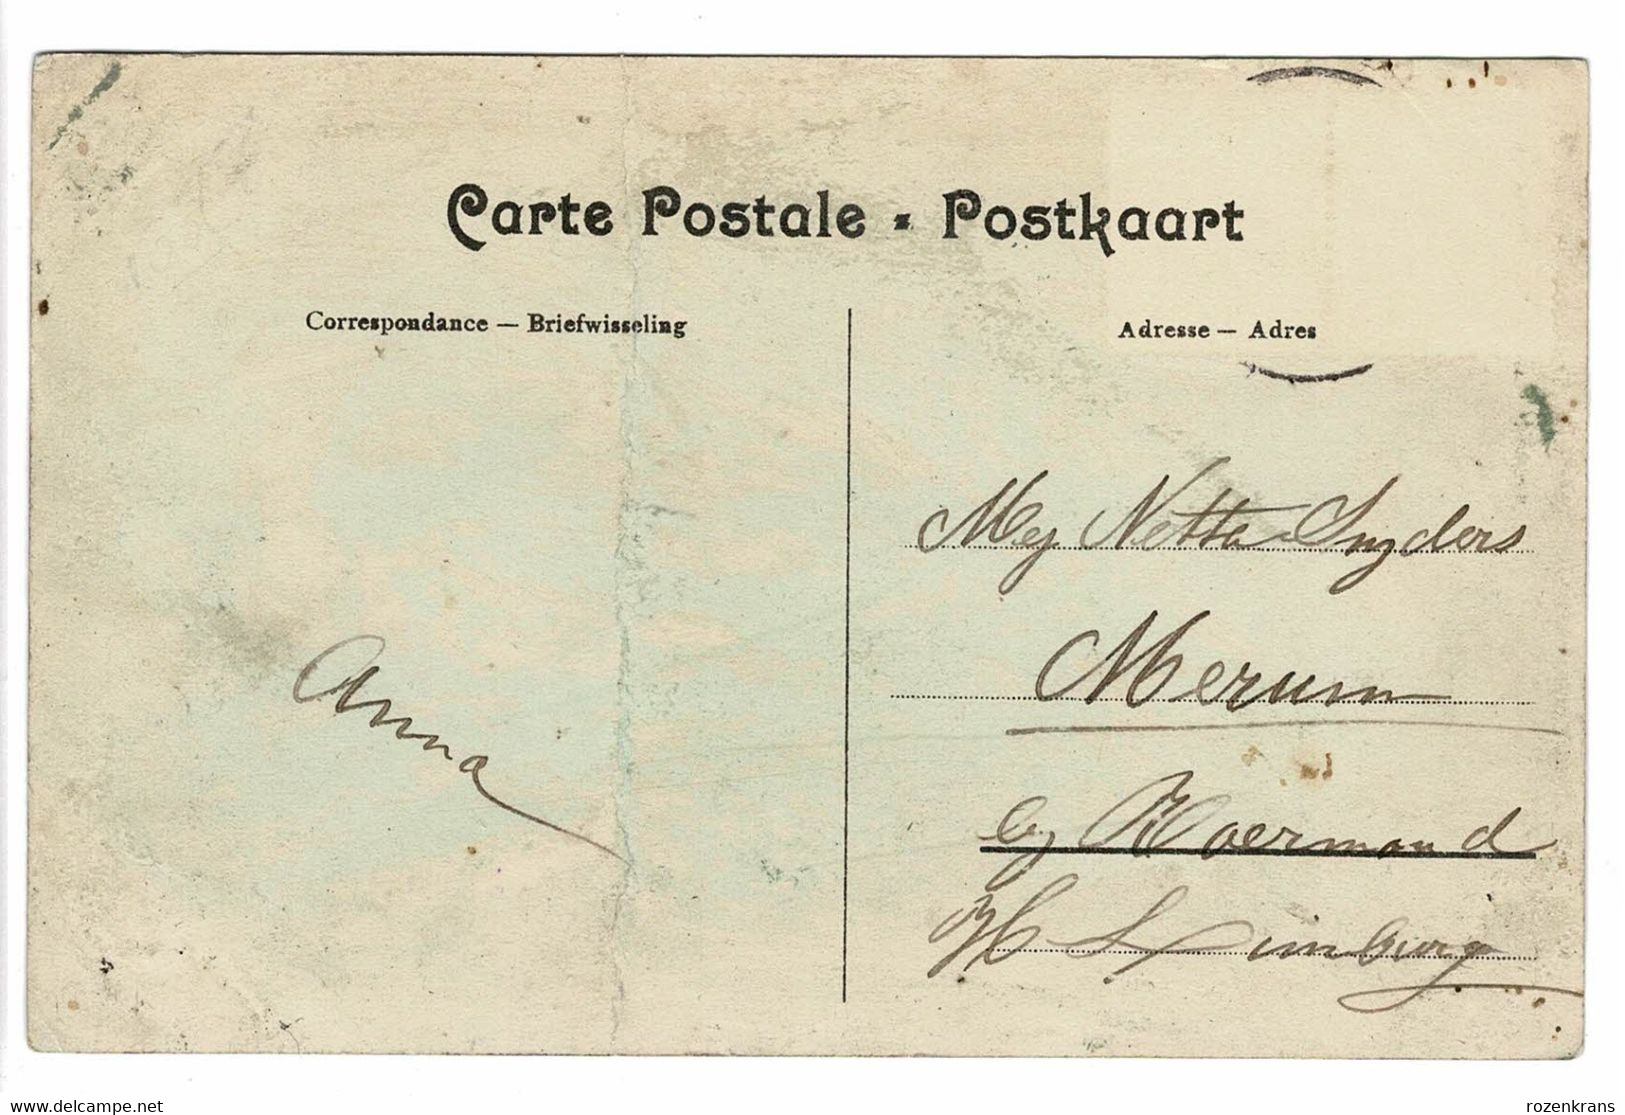 Carte Postale - Postkaart
Correspondance — Briefwisseling
Adresse — Adres
Mej Netta Snyders
Merum
by Roermond
H Limburg
Anna
www.delcampe.net
rozenkrans